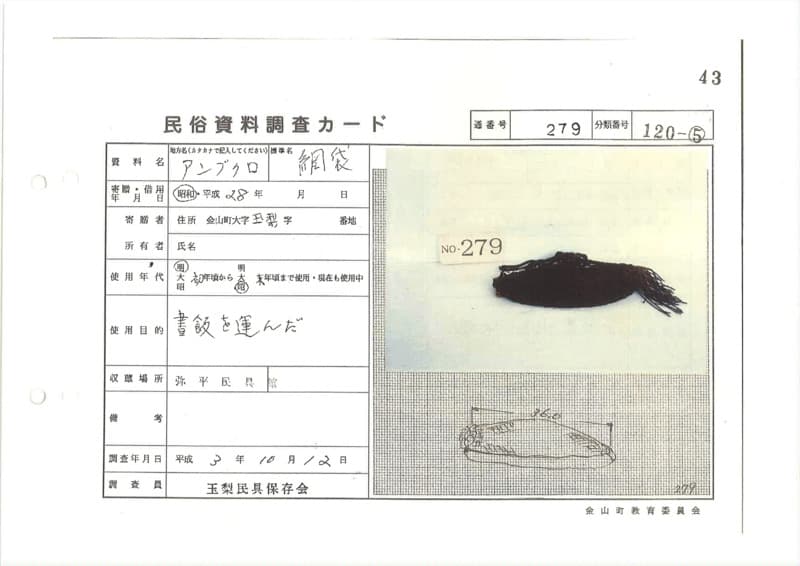 43
民俗資料調査カード
通番号 279 分類番号 120-⑤
資料名 地方名(カタカナで記入してください) アンブクロ 標準名 網袋
寄贈・借用年月日 昭和・平成 28年 月 日
寄贈者 住所 金山町大字 玉梨 字 番地
所有者 氏名
使用年代 明大昭 初年頃から 明大昭 末年頃まで使用・現在も使用中
使用目的 昼飯を運んだ
収蔵場所 弥平民具館
備考
調査年月日 平成 3年 10月 12日
調査員 玉梨民具保存会
NO.279
36.0
279
金山町教育委員会